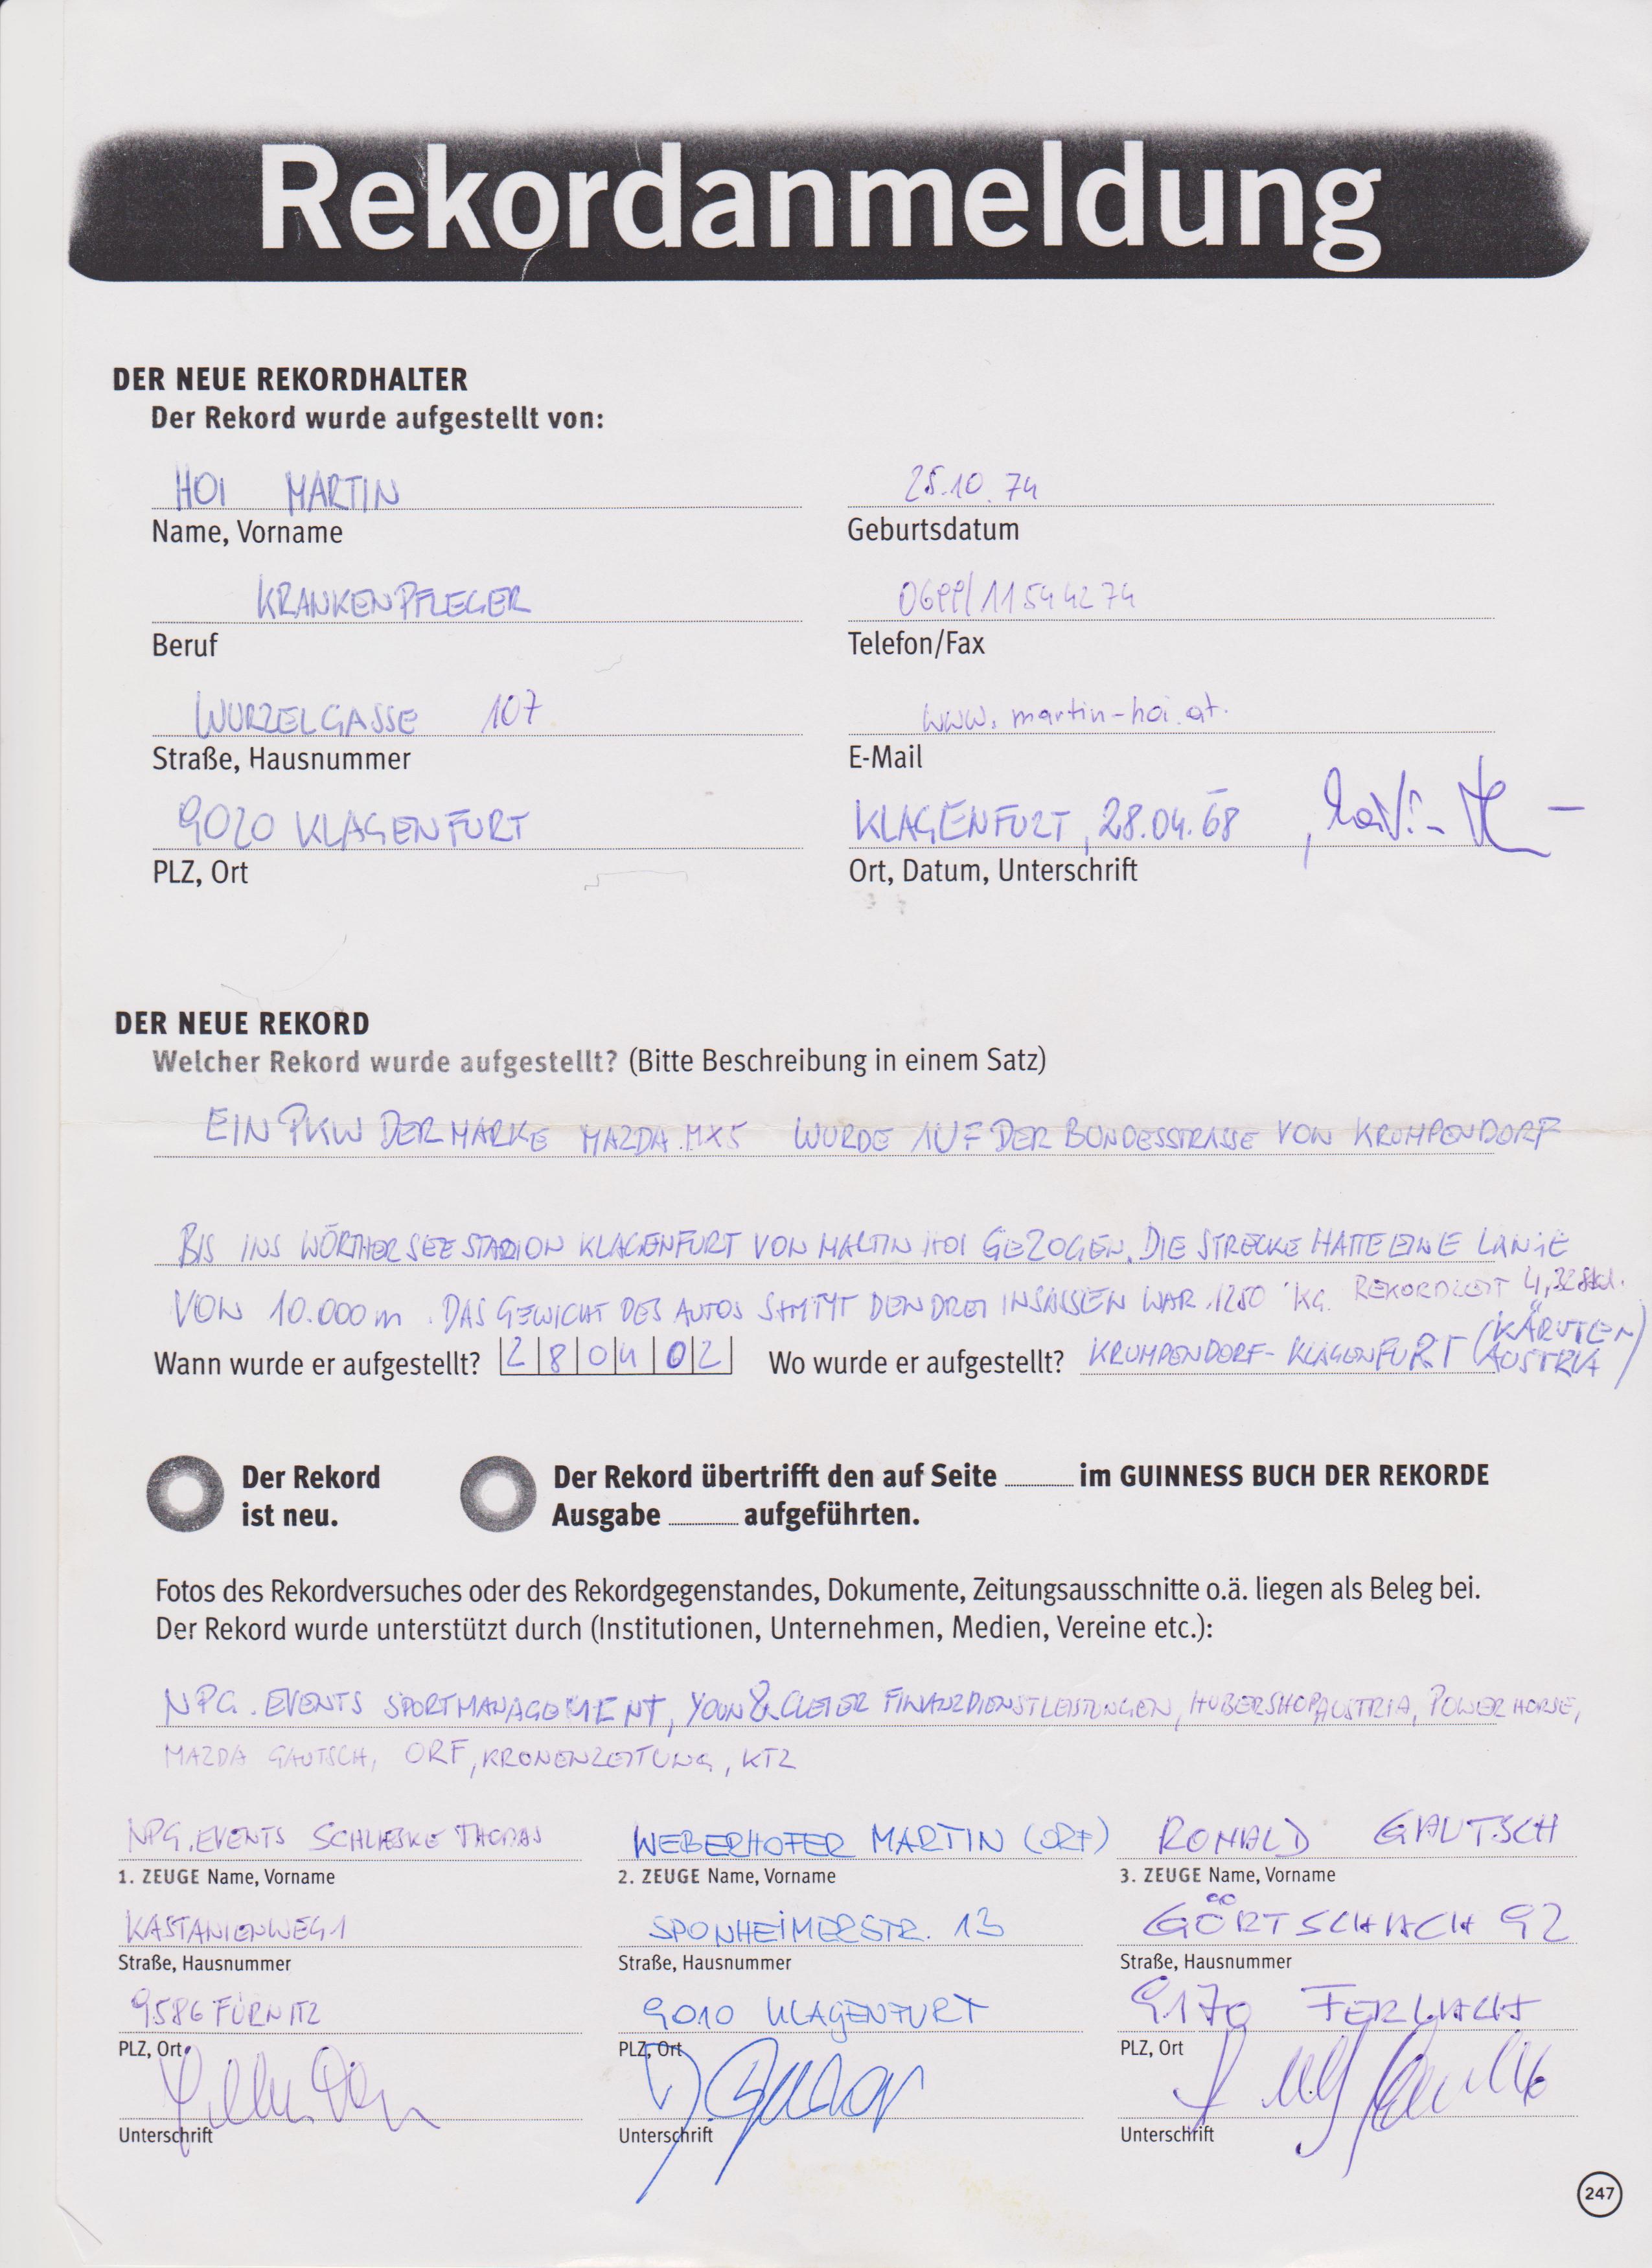 Rekordanmeldung
DER NEUE REKORDHALTER
Der Rekord wurde aufgestellt von:
HOI MARTIN
25.10.74
Name, Vorname
Geburtsdatum
KRANKENPFLEGER
0699/11544274
Beruf
Telefon/Fax
WURZELGASSE 107
www.martin-hoi.at.
Straße, Hausnummer
E-Mail
9020 KLAGENFURT
KLAGENFURT, 28.04.
PLZ, Ort
Ort, Datum, Unterschrift
DER NEUE REKORD
Welcher Rekord wurde aufgestellt? (Bitte Beschreibung in einem Satz)
EIN PKW DER MARKE MAZDA MX5 WURDE AUF DER BUNDESSTRASSE VON KRUMPENDORF
BIS INS WÖRTHERSEESTADION KLAGENFURT VON MARTIN HOI GEZOGEN. DIE STRECKE HATTE EINE
VON 10.000 m. DAS GEWICHT DES AUTOS SAMT DEN DREI INSASSEN WAR 1250 KG. REKORDZEIT 4,32 Std.
Wann wurde er aufgestellt? 280402 Wo wurde er aufgestellt? KRUMPENDORF - KLAGENFURT (KÄRNTEN AUSTRIA)
Der Rekord ist neu.
Der Rekord übertrifft den auf Seite im GUINNESS BUCH DER REKORDE
Ausgabe aufgeführten.
Fotos des Rekordversuches oder des Rekordgegenstandes, Dokumente, Zeitungsausschnitte o.ä. liegen als Beleg bei.
Der Rekord wurde unterstützt durch (Institutionen, Unternehmen, Medien, Vereine etc.):
NPG. EVENTS SPORTMANAGEMENT, FINANZDIENSTLEISTUNGEN, HUBERSHOPAUSTRIA, POWER HORSE,
MAZDA GAUTSCH, ORF, KRONENZEITUNG, KTZ
NPG. EVENTS SCHLIESKE THOMAS
WEBERHOFER MARTIN (ORF)
RONALD GAUTSCH
1. ZEUGE Name, Vorname
2. ZEUGE Name, Vorname
3. ZEUGE Name, Vorname
KASTANIENWEG 1
SPONHEIMERSTR. 13
GÖRTSCHACH 92
Straße, Hausnummer
Straße, Hausnummer
Straße, Hausnummer
9586 FÜRNITZ
9010 KLAGENFURT
9170 FERLACH
PLZ, Ort
PLZ, Ort
PLZ, Ort
Unterschrift
Unterschrift
Unterschrift
247